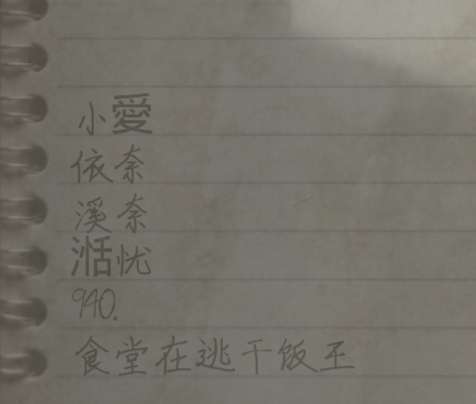 小愛
依奈
溪奈
湉忧
940.
食堂在逃干饭王